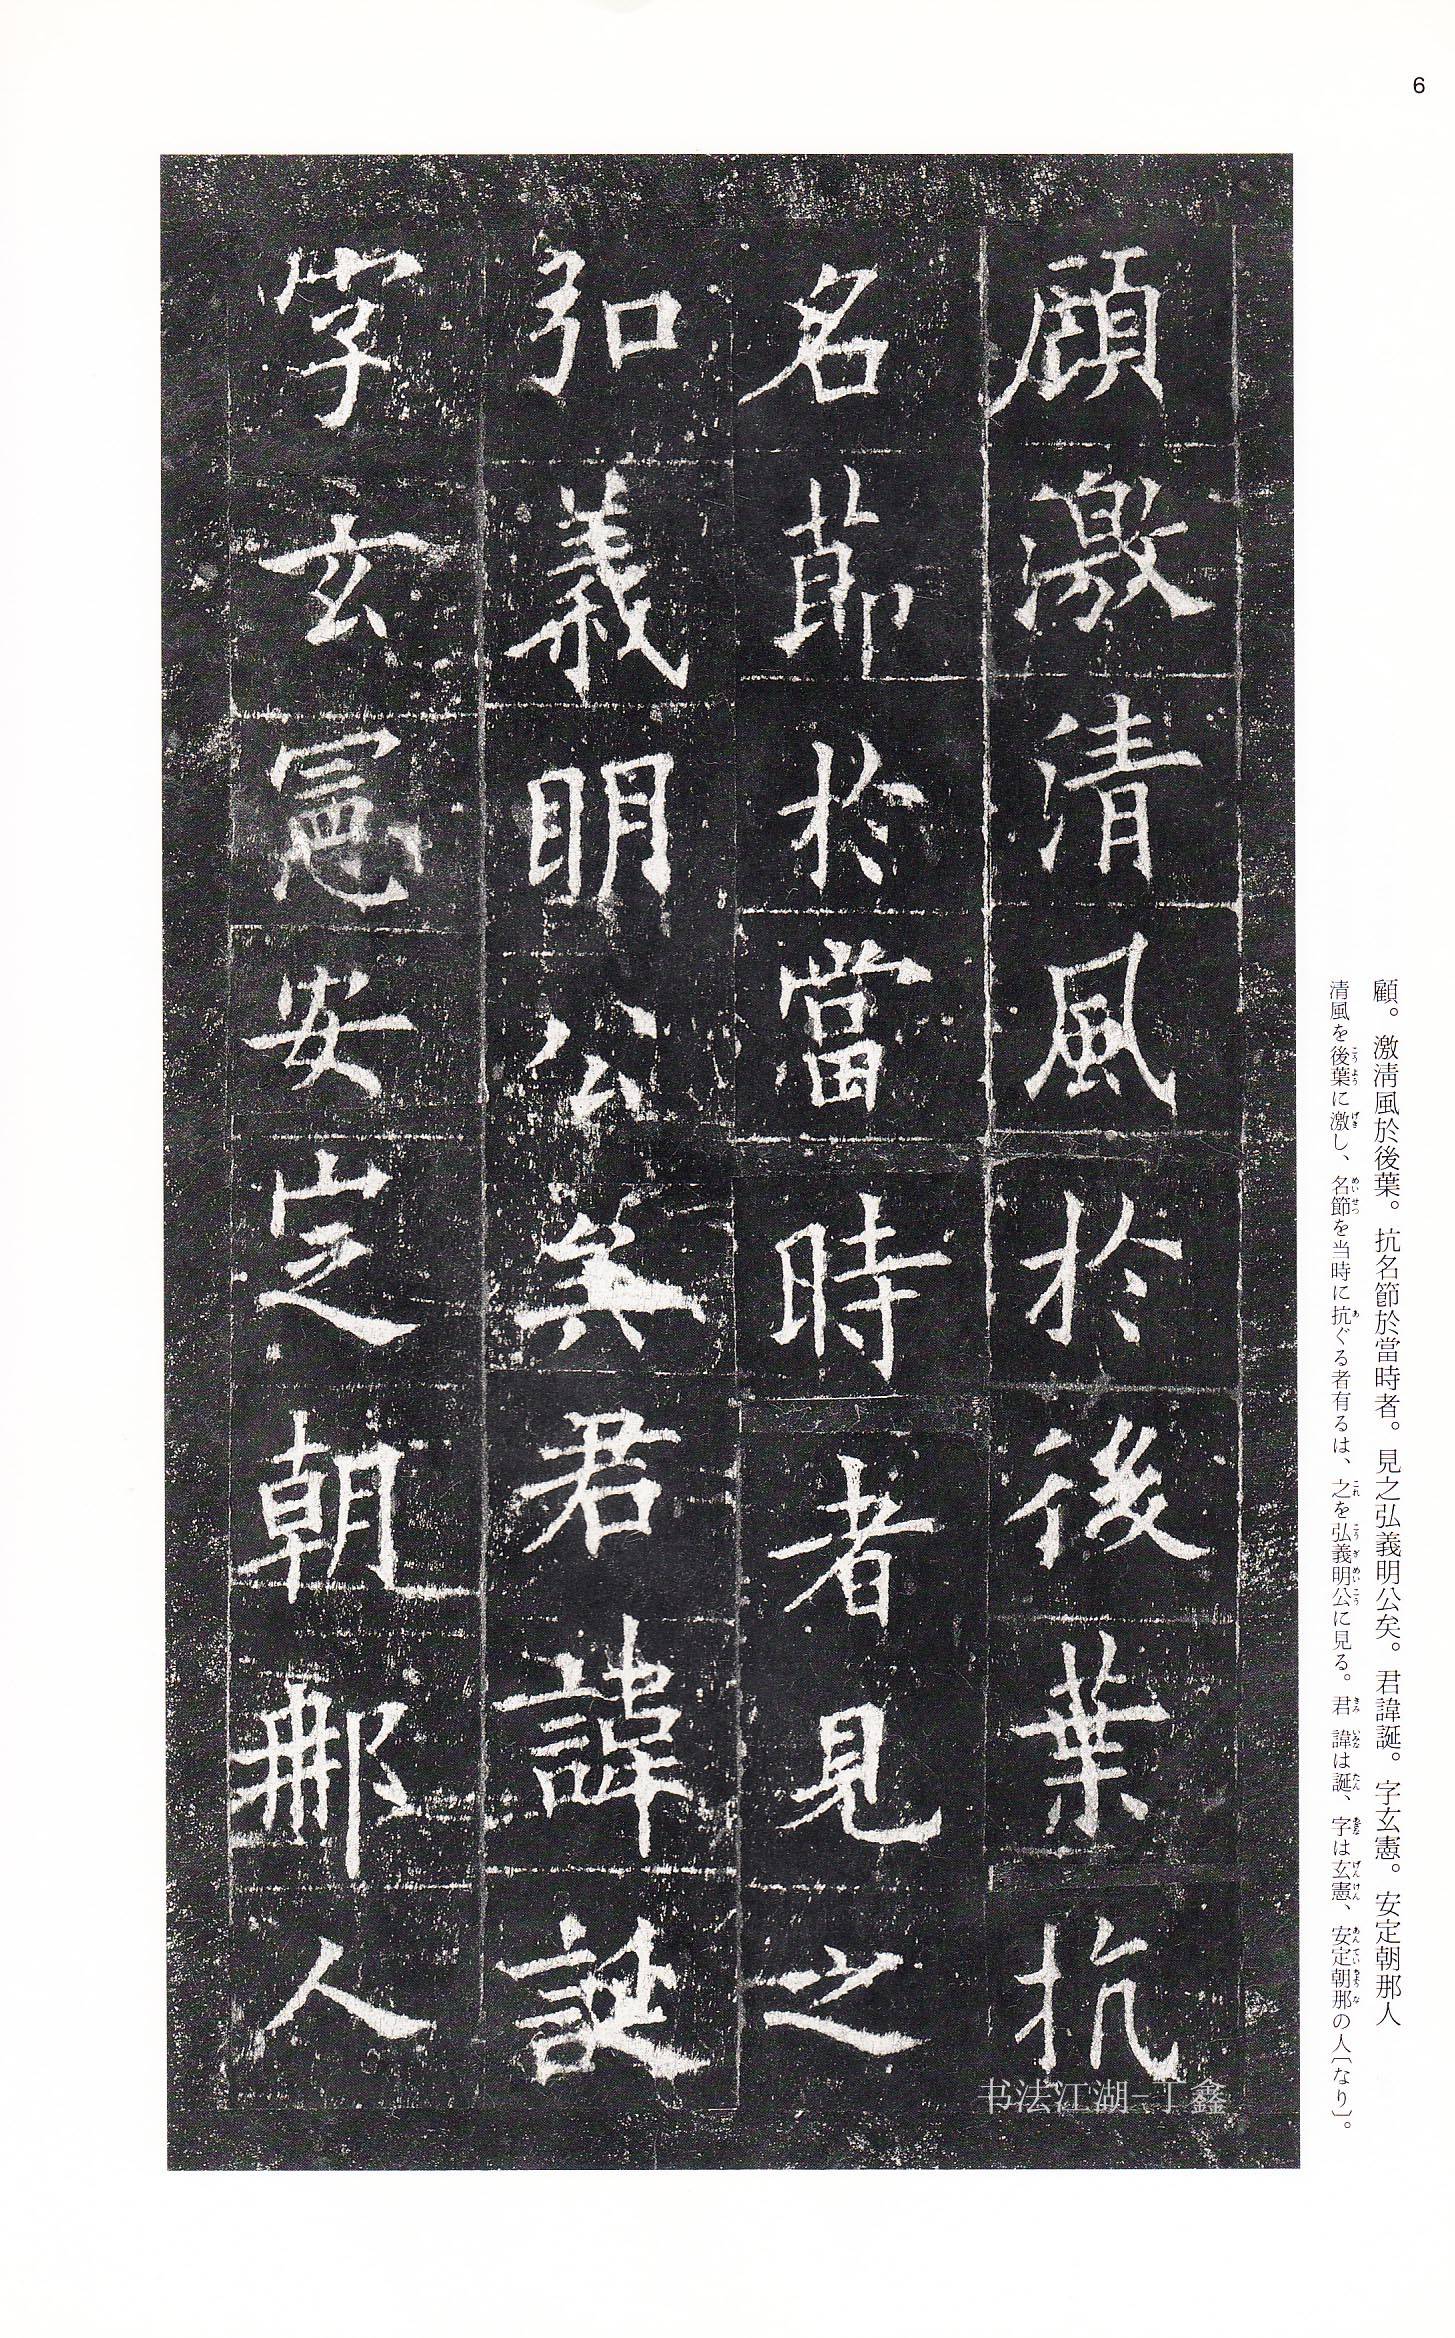 6
顧激清風於後葉抗
名節於當時者見之
弘義明公矣君諱誕
字玄憲安定朝那人
顧。激淸風於後葉。抗名節於當時者。見之弘義明公矣。君諱誕。字玄憲。安定朝那人
清風を後葉に激し、名節を当時に抗ぐる者有るは、之を弘義明公に見る。君諱は誕、字は玄憲、安定朝那の人〔なり〕。
书法江湖-丁鑫